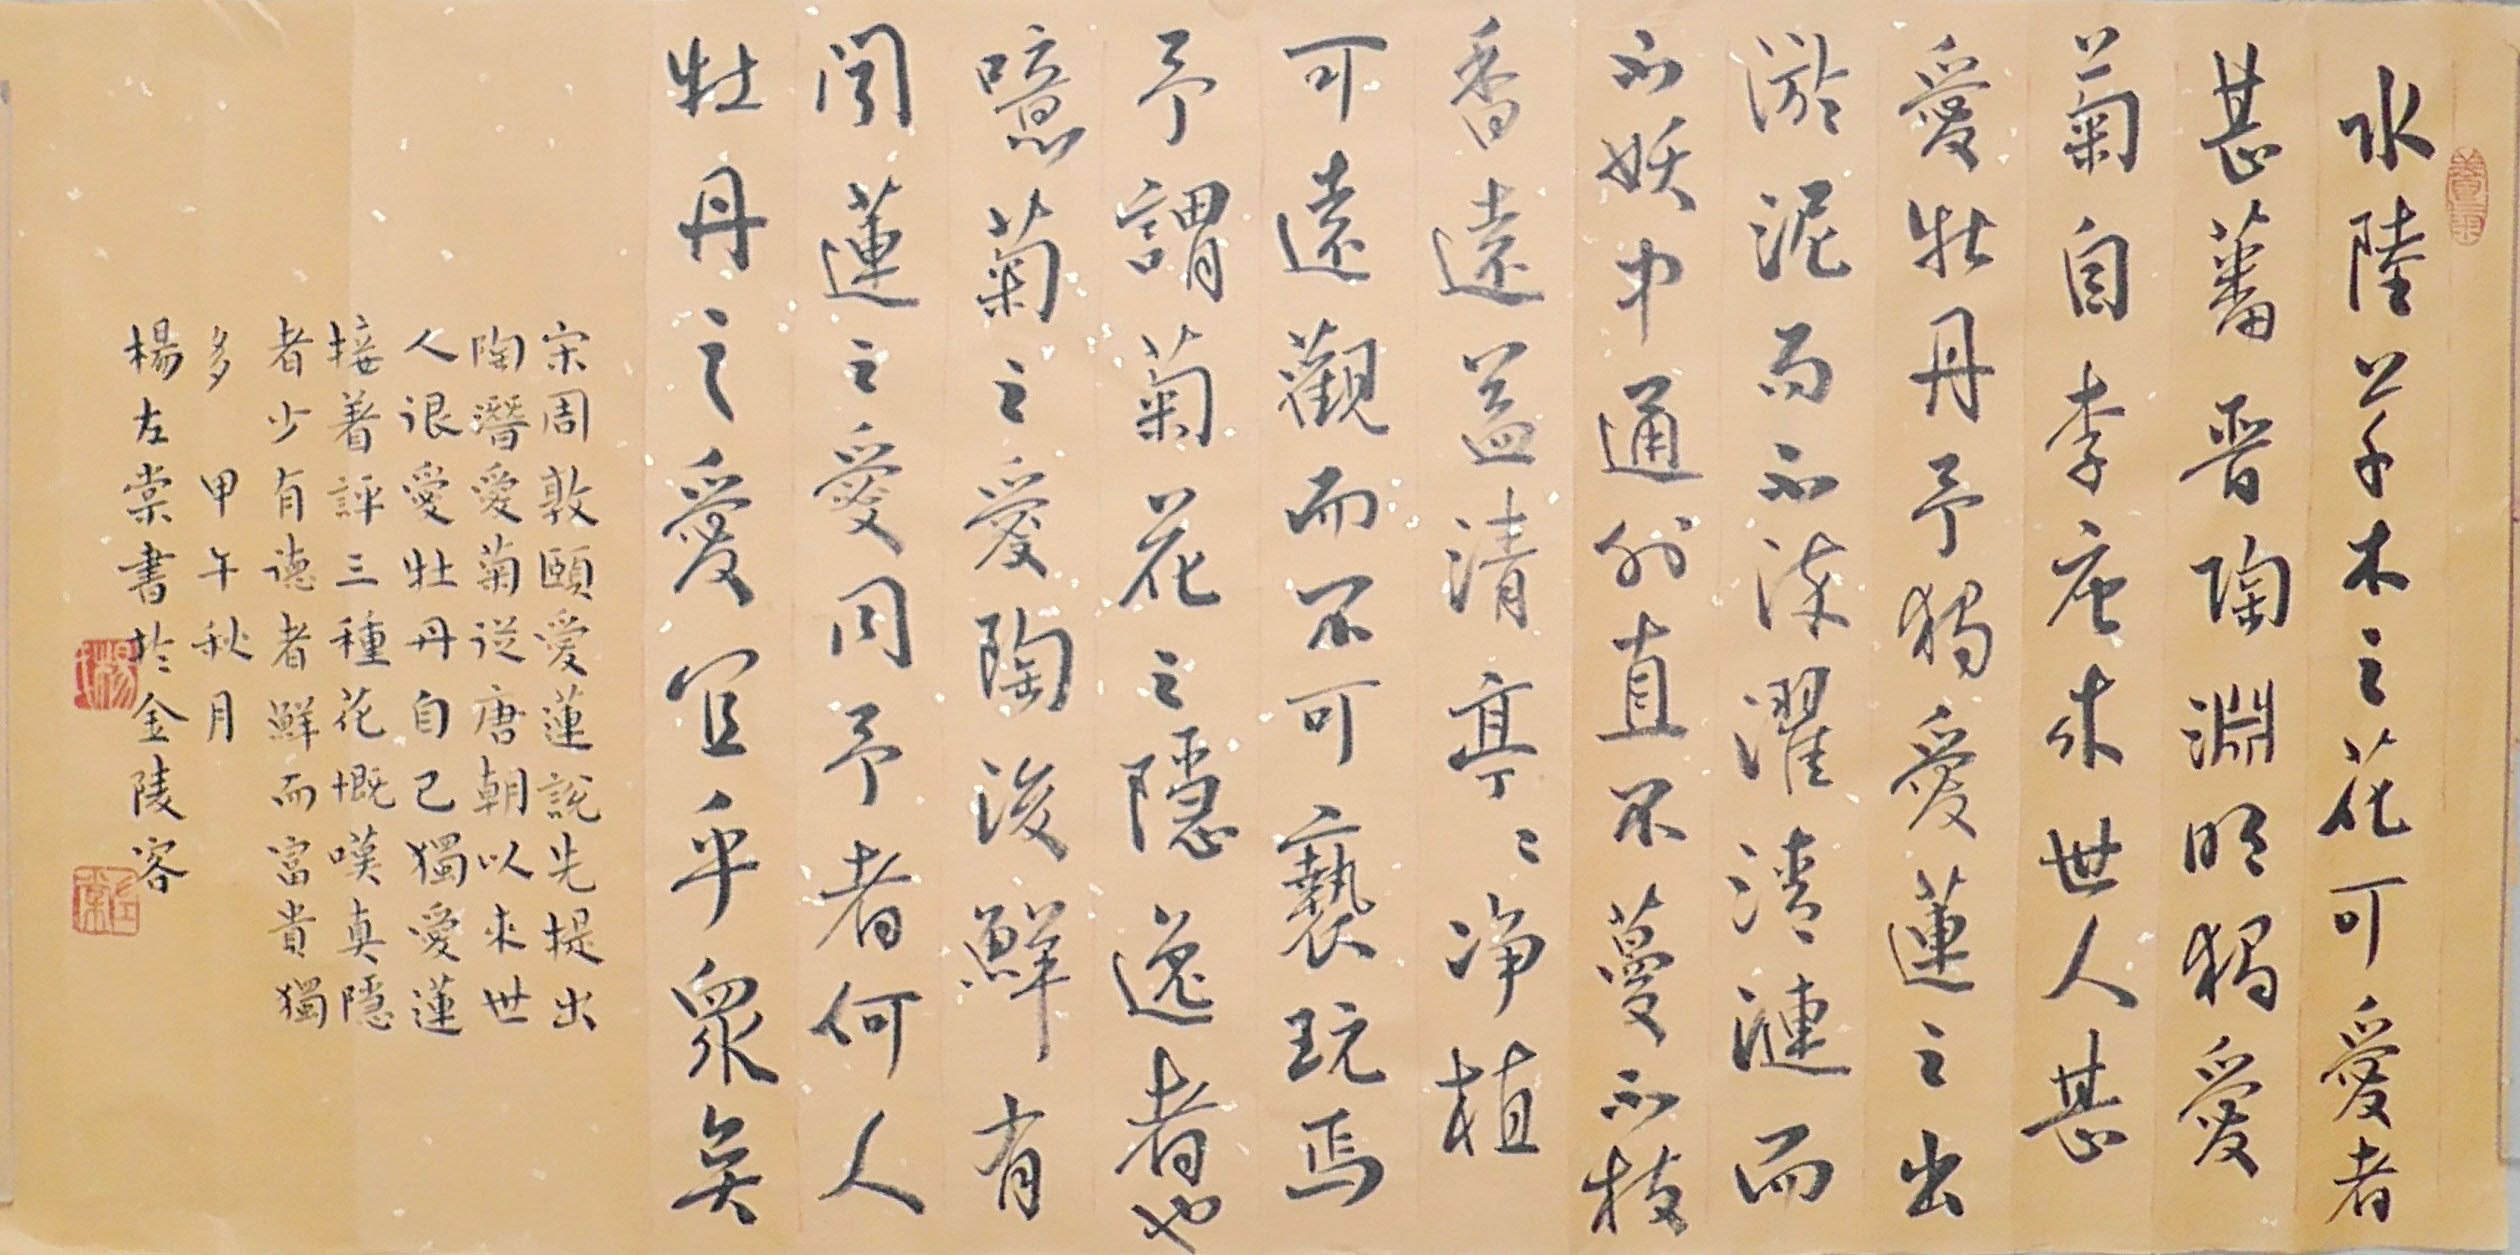 水陸草木之花可愛者
甚蕃晉陶淵明獨愛
菊自李唐來世人甚
愛牡丹予獨愛蓮之出
淤泥而不染濯清漣而
不妖中通外直不蔓不枝
香遠益清亭〻淨植
可遠觀而不可褻玩焉
予謂菊花之隱逸者也
噫菊之愛陶後鮮有
聞蓮之愛同予者何人
牡丹之愛宜乎眾矣
宋周敦頤愛蓮說先提出
陶潛愛菊從唐朝以來世
人很愛牡丹自己獨愛蓮
接著評三種花慨嘆真隱
者少有德者鮮而富貴獨
多 甲午秋月
楊左棠書於金陵客